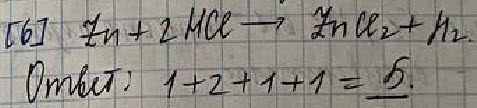 [6] Zn + 2 HCl → ZnCl₂ + H₂.
Ответ: 1+2+1+1 = 5.